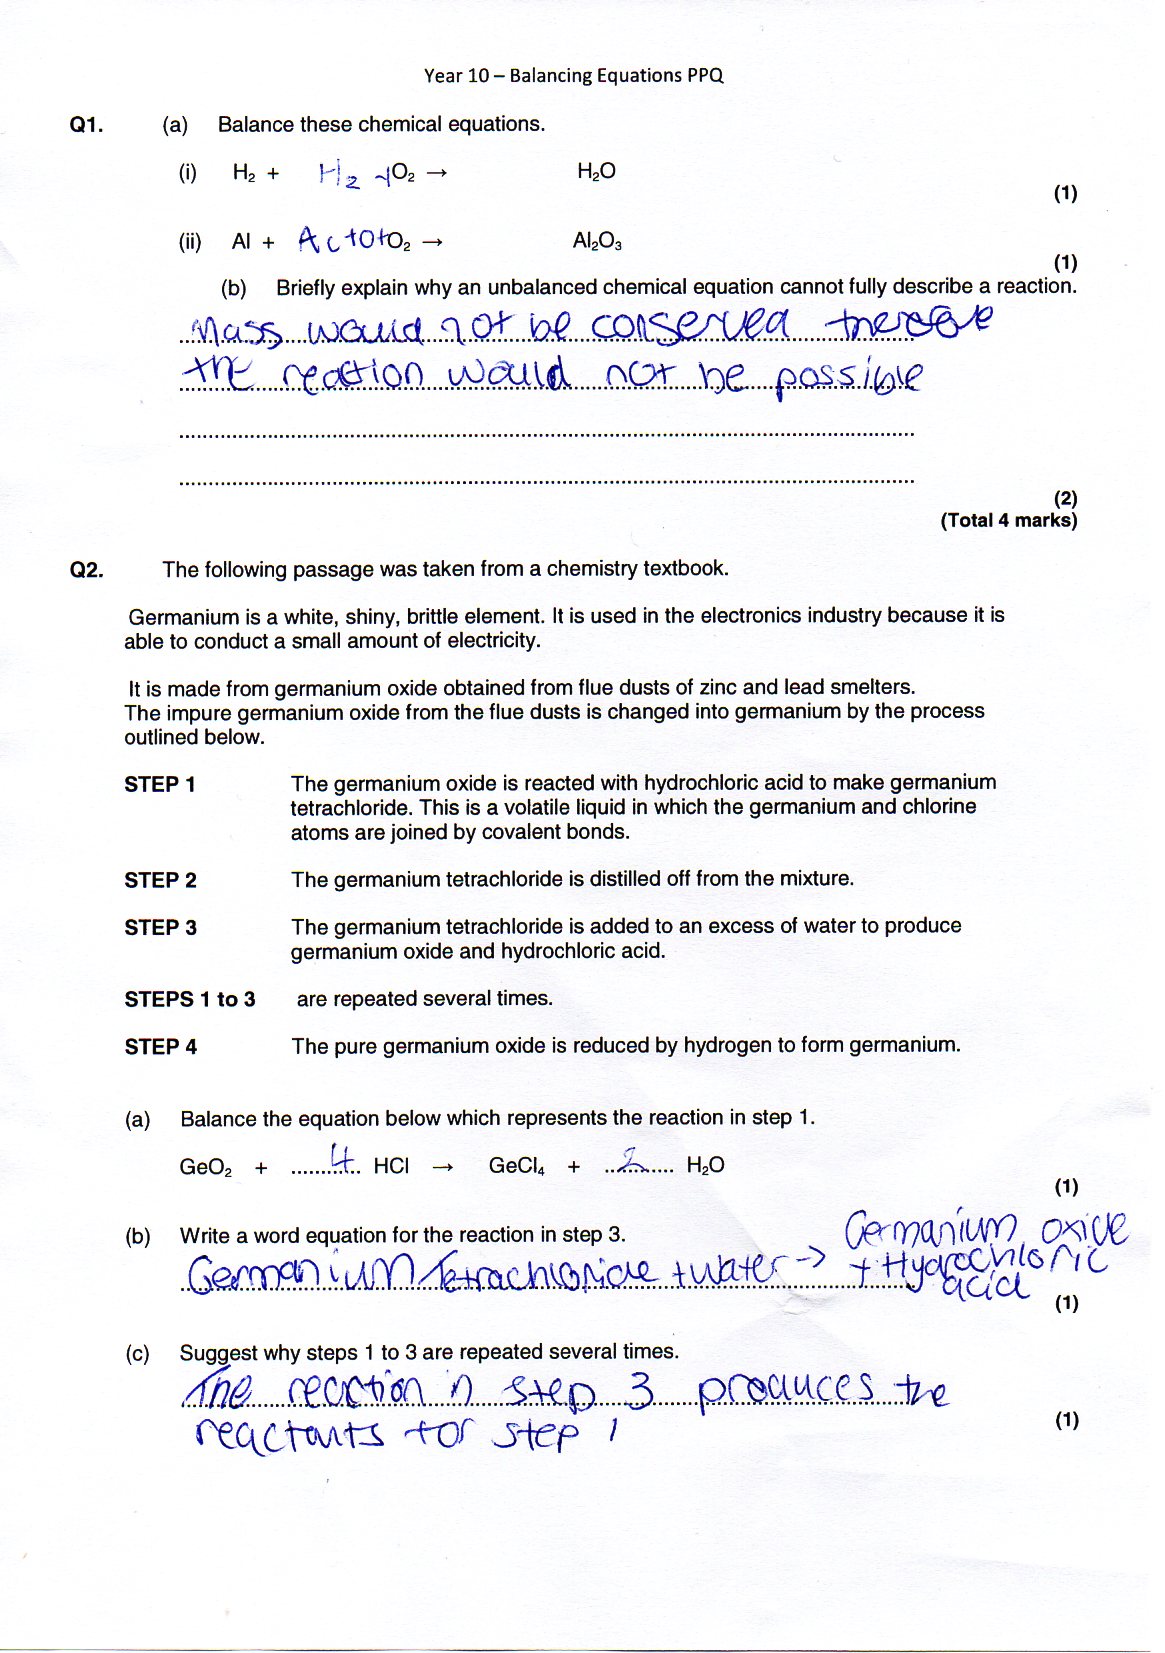 Year 10 – Balancing Equations PPQ
Q1. (a) Balance these chemical equations.
(i) H₂ + H₂ + O₂ → H₂O
(1)
(ii) Al + O₂ → Al₂O₃
(1)
(b) Briefly explain why an unbalanced chemical equation cannot fully describe a reaction.
Mass would not be conserved therefore
the reaction would not be possible
(2)
(Total 4 marks)
Q2. The following passage was taken from a chemistry textbook.
Germanium is a white, shiny, brittle element. It is used in the electronics industry because it is
able to conduct a small amount of electricity.
It is made from germanium oxide obtained from flue dusts of zinc and lead smelters.
The impure germanium oxide from the flue dusts is changed into germanium by the process
outlined below.
STEP 1 The germanium oxide is reacted with hydrochloric acid to make germanium
tetrachloride. This is a volatile liquid in which the germanium and chlorine
atoms are joined by covalent bonds.
STEP 2 The germanium tetrachloride is distilled off from the mixture.
STEP 3 The germanium tetrachloride is added to an excess of water to produce
germanium oxide and hydrochloric acid.
STEPS 1 to 3 are repeated several times.
STEP 4 The pure germanium oxide is reduced by hydrogen to form germanium.
(a) Balance the equation below which represents the reaction in step 1.
GeO₂ + ....4.... HCl → GeCl₄ + ....2.... H₂O
(1)
(b) Write a word equation for the reaction in step 3.
Germanium Tetrachloride + Water → Germanium oxide
+ Hydrochloric
acid
(1)
(c) Suggest why steps 1 to 3 are repeated several times.
The reaction in step 3 produces the
reactants for step 1
(1)